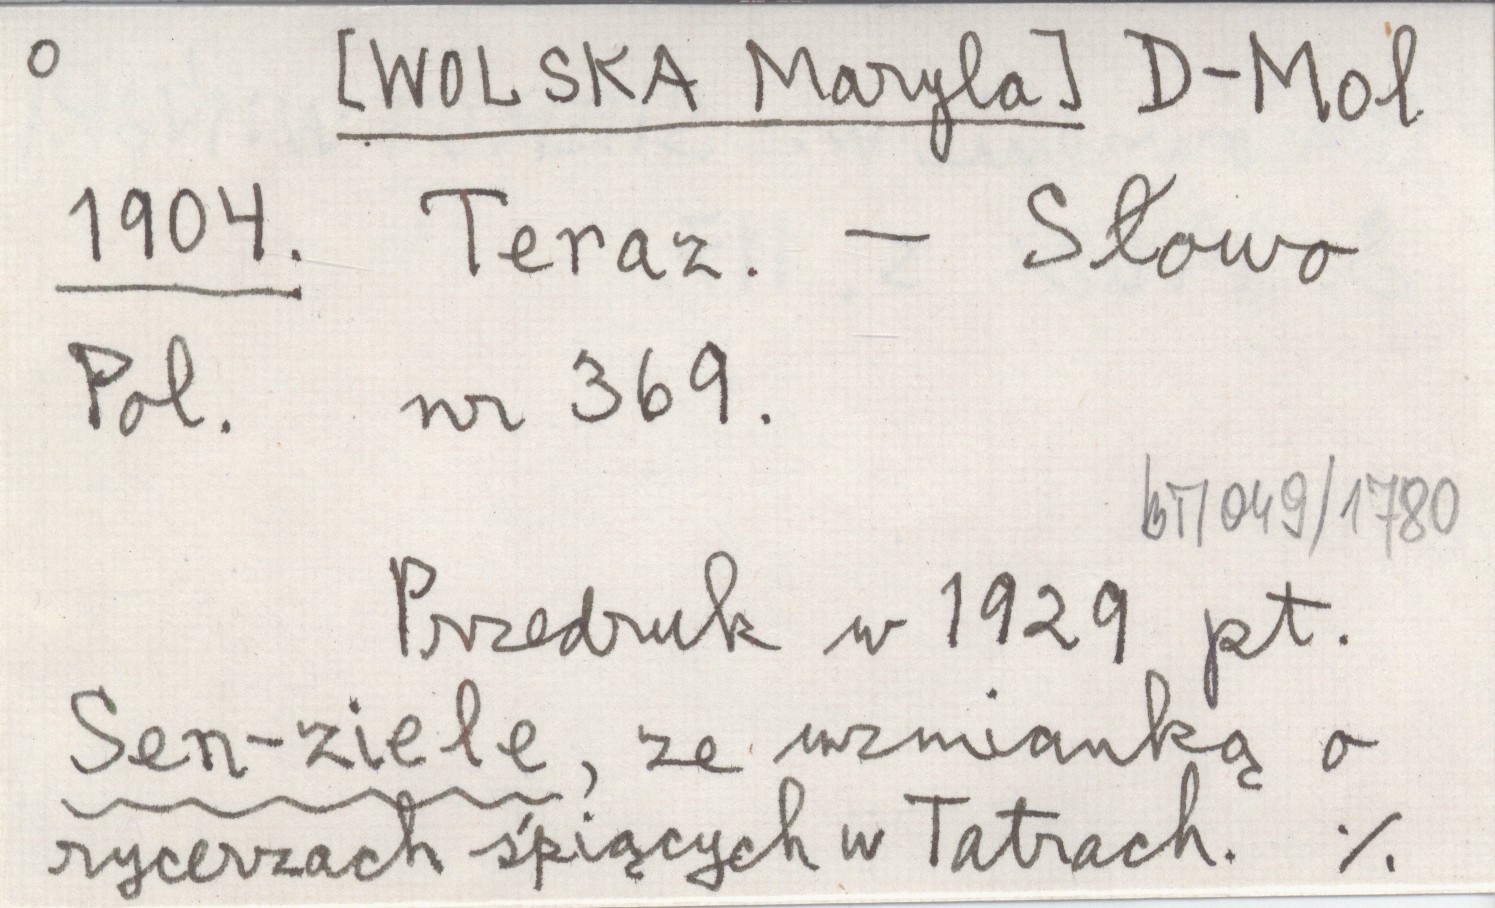 o [WOLSKA Maryla] D-Mol
1904. Teraz. — Słowo
Pol. nr 369.
BT/049/1780
Przedruk w 1929 pt.
Sen-ziele, ze wzmianką o
rycerzach śpiących w Tatrach. ./.